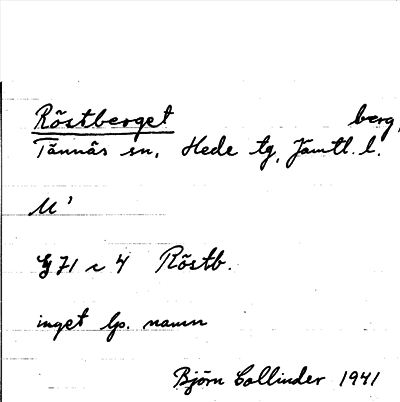 Röstberget berg,
Tännäs sn, Hede tg, Jämtl. l.
M'
G 71 c 4 Röstb.
inget lp. namn
Björn Collinder 1941